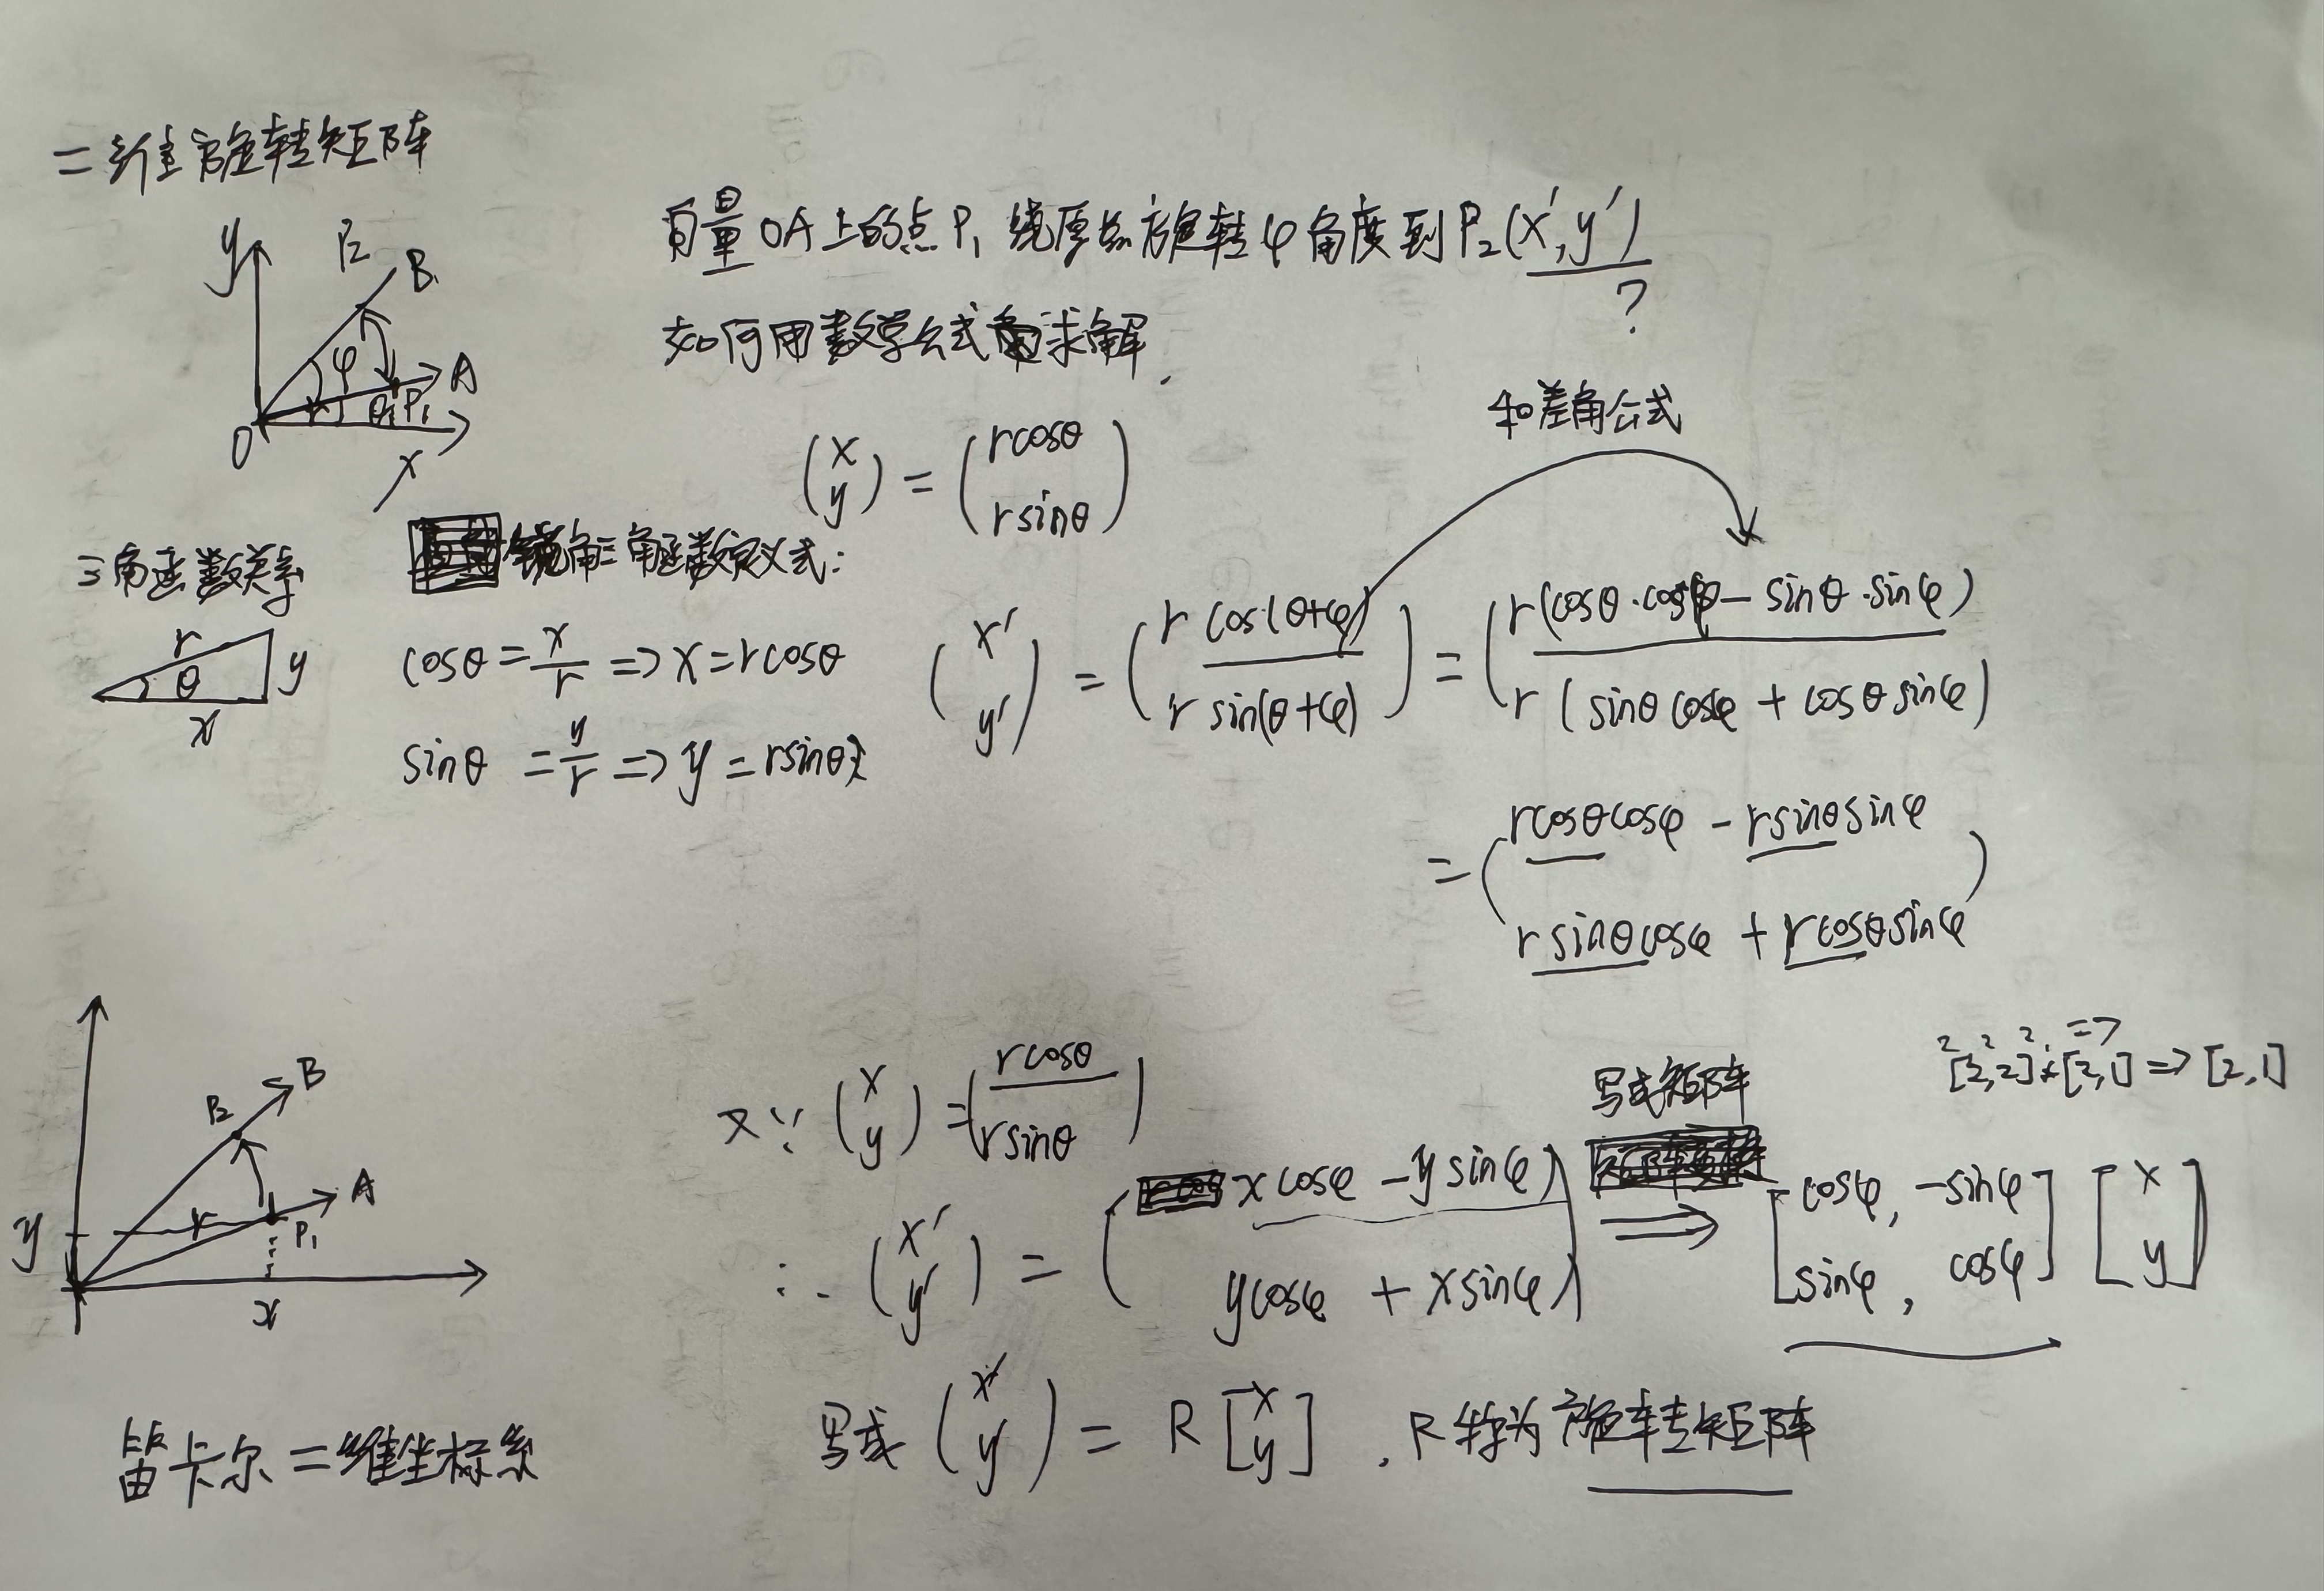 二维旋转矩阵
向量OA上的点P₁绕原点旋转φ角度到P₂(x′,y′)
?
如何用数学公式求解.
y
P₂
B
φ
A
θ
P₁
O
x
和差角公式
(x y) = (rcosθ rsinθ)
三角函数关系
锐角三角函数定义式:
r
θ
y
x
cosθ = x/r => x = rcosθ
sinθ = y/r => y = rsinθ
(x′ y′) = (r cos(θ+φ) r sin(θ+φ)) = (r(cosθ·cosφ - sinθ·sinφ) r(sinθcosφ + cosθsinφ))
= (rcosθcosφ - rsinθsinφ rsinθcosφ + rcosθsinφ)
B
P₂
A
r
P₁
y
x
笛卡尔二维坐标系
又∵ (x y) = (rcosθ rsinθ)
写成矩阵
[2,2]×[2,1] => [2,1]
∴ (x′ y′) = (xcosφ - ysinφ ycosφ + xsinφ) => [cosφ, -sinφ sinφ, cosφ] [x y]
写成 (x′ y′) = R [x y] . R称为旋转矩阵